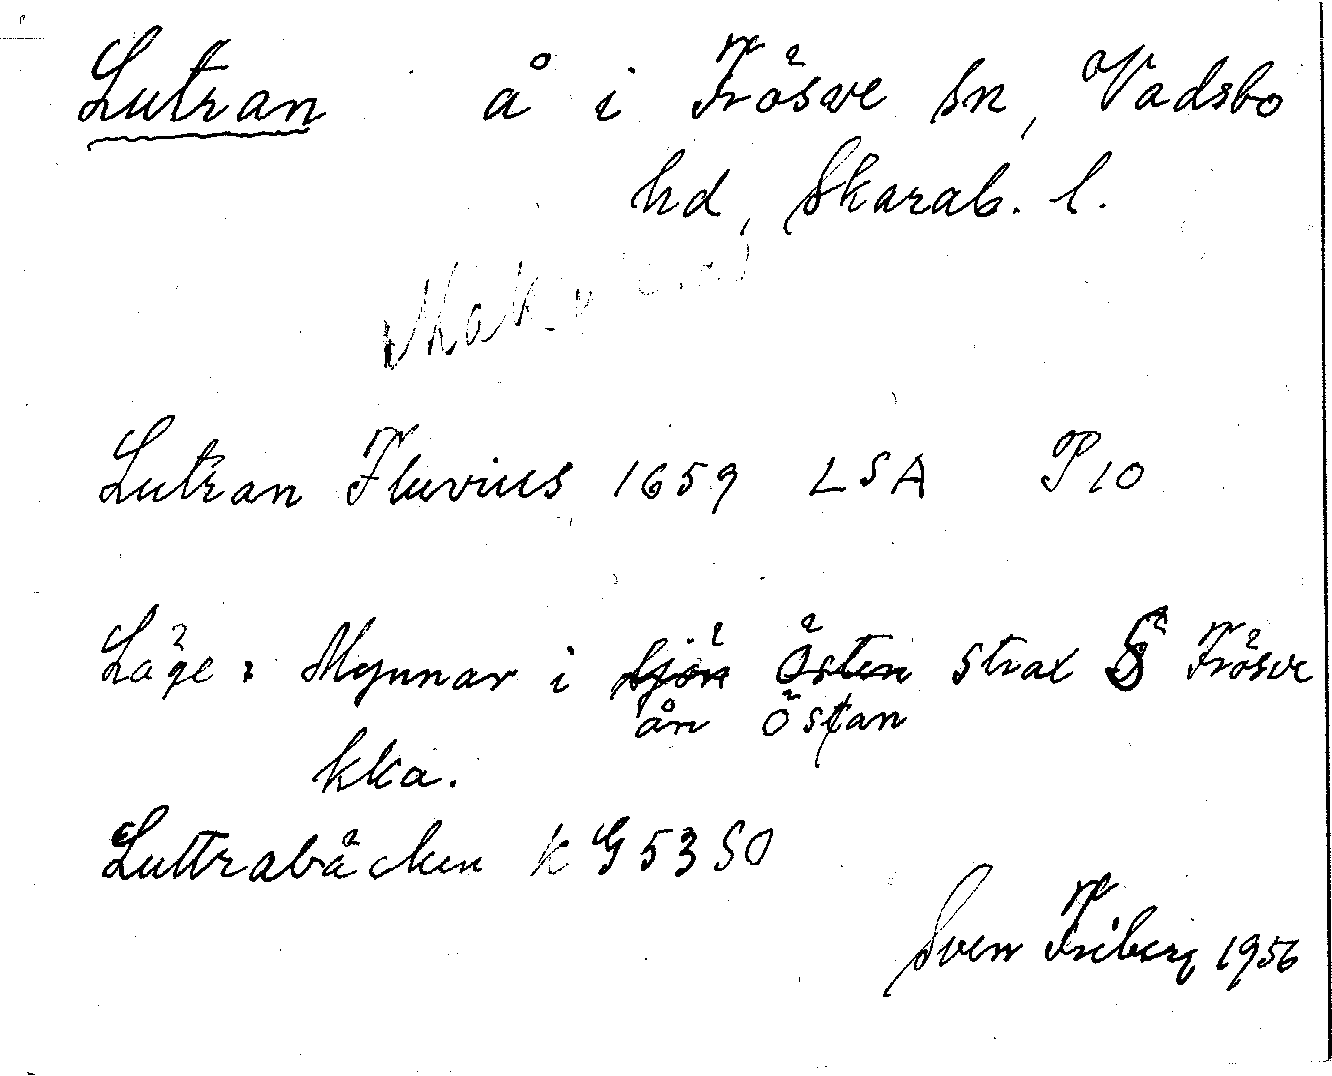 Lutran å i Frösve sn, Vadsbo
hd, Skarab. l.
Lutran Fluvius 1659 LSA P10
Läge: Mynnar i sjön Östen strax S Frösve
ån Östan
kka.
Luttrabäcken k G 53 SO
Sven Friberg 1956